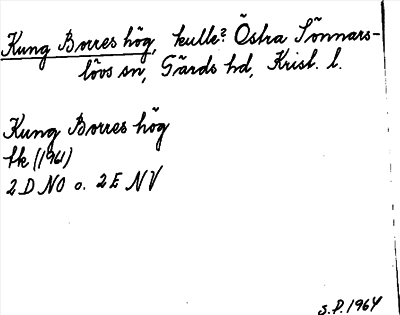 Kung Borres hög, kulle? Östra Sönnars-
lövs sn, Gärds hd, Krist. l.
Kung Borres hög
tk (1961)
2 D NO o. 2 E NV
S.P. 1964